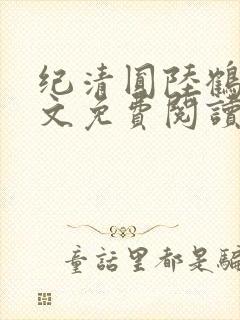 纪清圆陸鶴
文免費閱讀
童話里都是騙